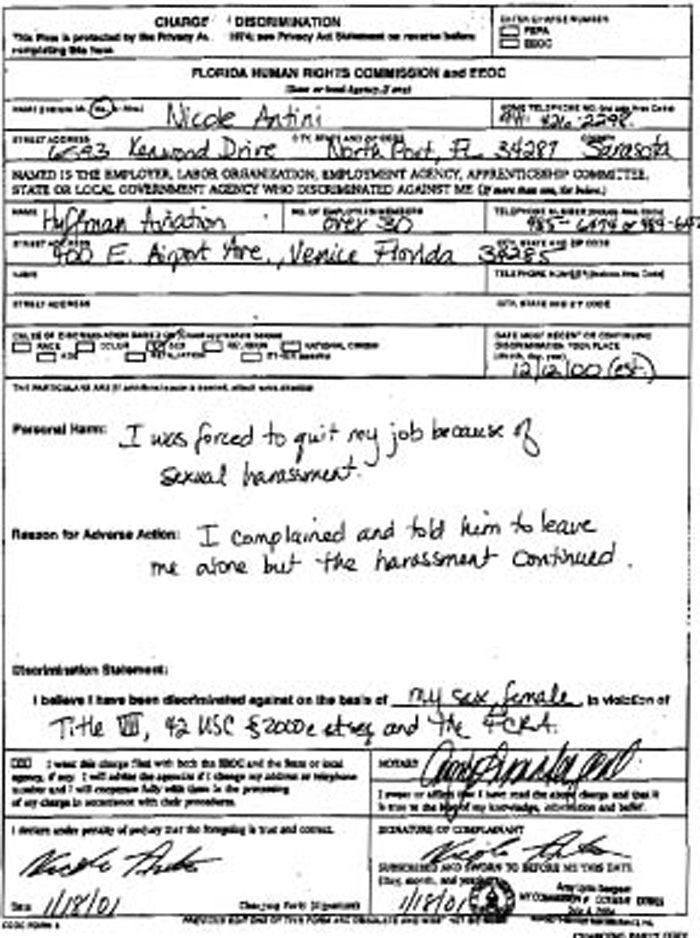 CHARGE DISCRIMINATION
This Form is protected by the Privacy Ac 1974; see Privacy Act Statement on reverse before
completing this form
ENTER CHARGE NUMBER
FEPA
EEOC
FLORIDA HUMAN RIGHTS COMMISSION and EEOC
(State or local Agency, if any)
Nicole Antini
HOME TELEPHONE NO.
STREET ADDRESS CITY, STATE AND ZIP CODE COUNTY
Kenwood Drive North Port, FL 34287 Sarasota
NAMED IS THE EMPLOYER, LABOR ORGANIZATION, EMPLOYMENT AGENCY, APPRENTICESHIP COMMITTEE,
STATE OR LOCAL GOVERNMENT AGENCY WHO DISCRIMINATED AGAINST ME (If more than one, list below.)
NAME NO. OF EMPLOYEES/MEMBERS TELEPHONE NUMBER
Huffman Aviation over 30
STREET ADDRESS CITY, STATE AND ZIP CODE
400 E. Airport Ave., Venice Florida 34285
NAME TELEPHONE NUMBER (Include Area Code)
STREET ADDRESS CITY, STATE AND ZIP CODE
CAUSE OF DISCRIMINATION BASED ON
RACE COLOR SEX RELIGION NATIONAL ORIGIN
AGE RETALIATION OTHER
DATE MOST RECENT OR CONTINUING
DISCRIMINATION TOOK PLACE
(Month, day, year)
12/12/00 (est.)
THE PARTICULARS ARE
Personal Harm: I was forced to quit my job because of
sexual harassment.
Reason for Adverse Action: I complained and told him to leave
me alone but the harassment continued.
Discrimination Statement:
I believe I have been discriminated against on the basis of my sex, female, in violation of
Title VII, 42 USC § 2000e et seq and the FCRA.
I want this charge filed with both the EEOC and the State or local
agency, if any. I will advise the agencies if I change my address or telephone
number and I will cooperate fully with them in the processing
of my charge in accordance with their procedures.
NOTARY
I swear or affirm that I have read the above charge and that it
is true to the best of my knowledge, information and belief.
I declare under penalty of perjury that the foregoing is true and correct.
SIGNATURE OF COMPLAINANT
SUBSCRIBED AND SWORN TO BEFORE ME THIS DATE
(Day, month, and year)
Date 1/18/01 Charging Party (Signature)
1/18/01
MY COMMISSION
EEOC FORM 5
PREVIOUS EDITIONS OF THIS FORM ARE OBSOLETE AND MUST NOT BE USED
CHARGING PARTY COPY